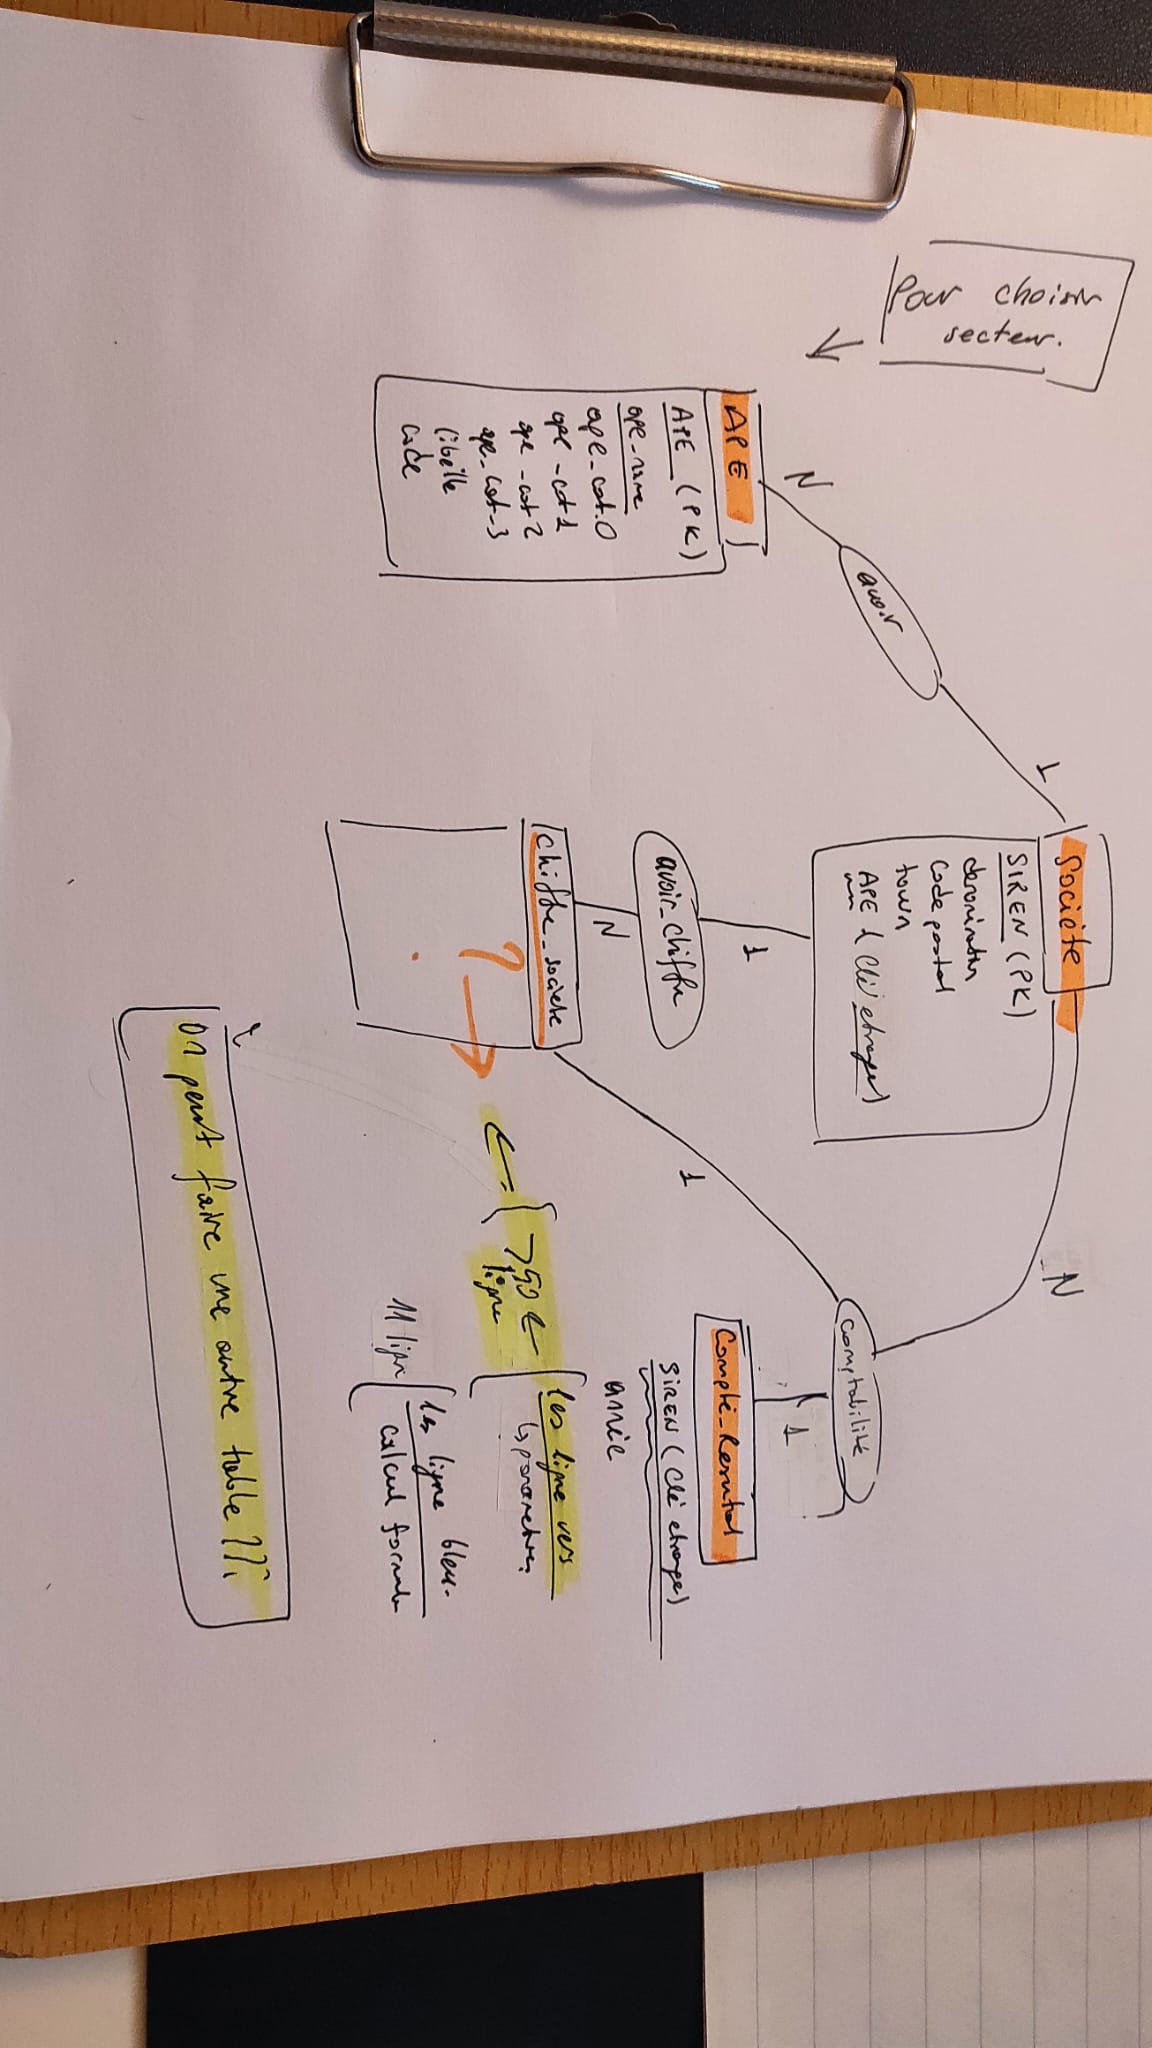 Pour choisir
secteur.
APE
APE (PK)
ape_name
ape_cat.0
ape-cat1
ape-cat2
ape_cat-3
libelle
code
N
avoir
1
Sociète
SIREN (PK)
code postal
town
APE (Clé etranger)
1
avoir_chiffre
N
chiffre_societe
?
N
1
comptabilité
1
Compte-Resultat
SIREN (Clé etranger)
année
les ligne vers
>50
ligne
les ligne bleu
calcul formule
11 lign
on peut faire une autre table ???